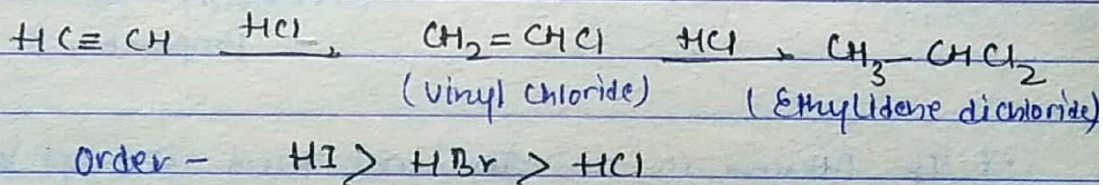 HC≡CH —HCl→ CH₂=CHCl —HCl→ CH₃–CHCl₂
(Vinyl Chloride) (Ethylidene dichloride)
Order – HI > HBr > HCl